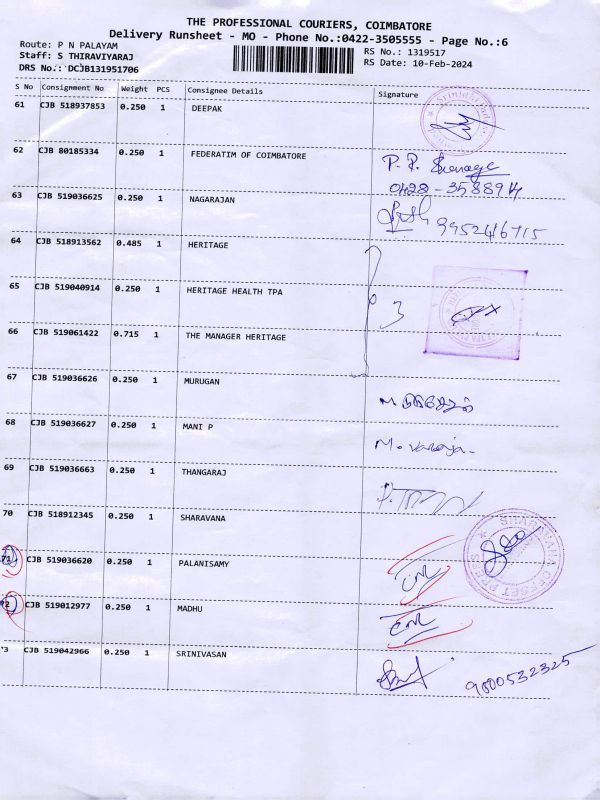 THE PROFESSIONAL COURIERS, COIMBATORE
Delivery Runsheet - MO - Phone No.:0422-3505555 - Page No.:6
Route: P N PALAYAM
RS No.: 1319517
Staff: S THIRAVIYARAJ
RS Date: 10-Feb-2024
DRS No.: DCJB131951706
S No Consignment No Weight PCS Consignee Details Signature
61 CJB 518937853 0.250 1 DEEPAK
62 CJB 80185334 0.250 1 FEDERATIM OF COIMBATORE
63 CJB 519036625 0.250 1 NAGARAJAN
9952446715
64 CJB 518913562 0.485 1 HERITAGE
65 CJB 519040914 0.250 1 HERITAGE HEALTH TPA
3
66 CJB 519061422 0.715 1 THE MANAGER HERITAGE
67 CJB 519036626 0.250 1 MURUGAN
68 CJB 519036627 0.250 1 MANI P
69 CJB 519036663 0.250 1 THANGARAJ
70 CJB 518912345 0.250 1 SHARAVANA
71 CJB 519036620 0.250 1 PALANISAMY
72 CJB 519012977 0.250 1 MADHU
3 CJB 519042966 0.250 1 SRINIVASAN
9600532325